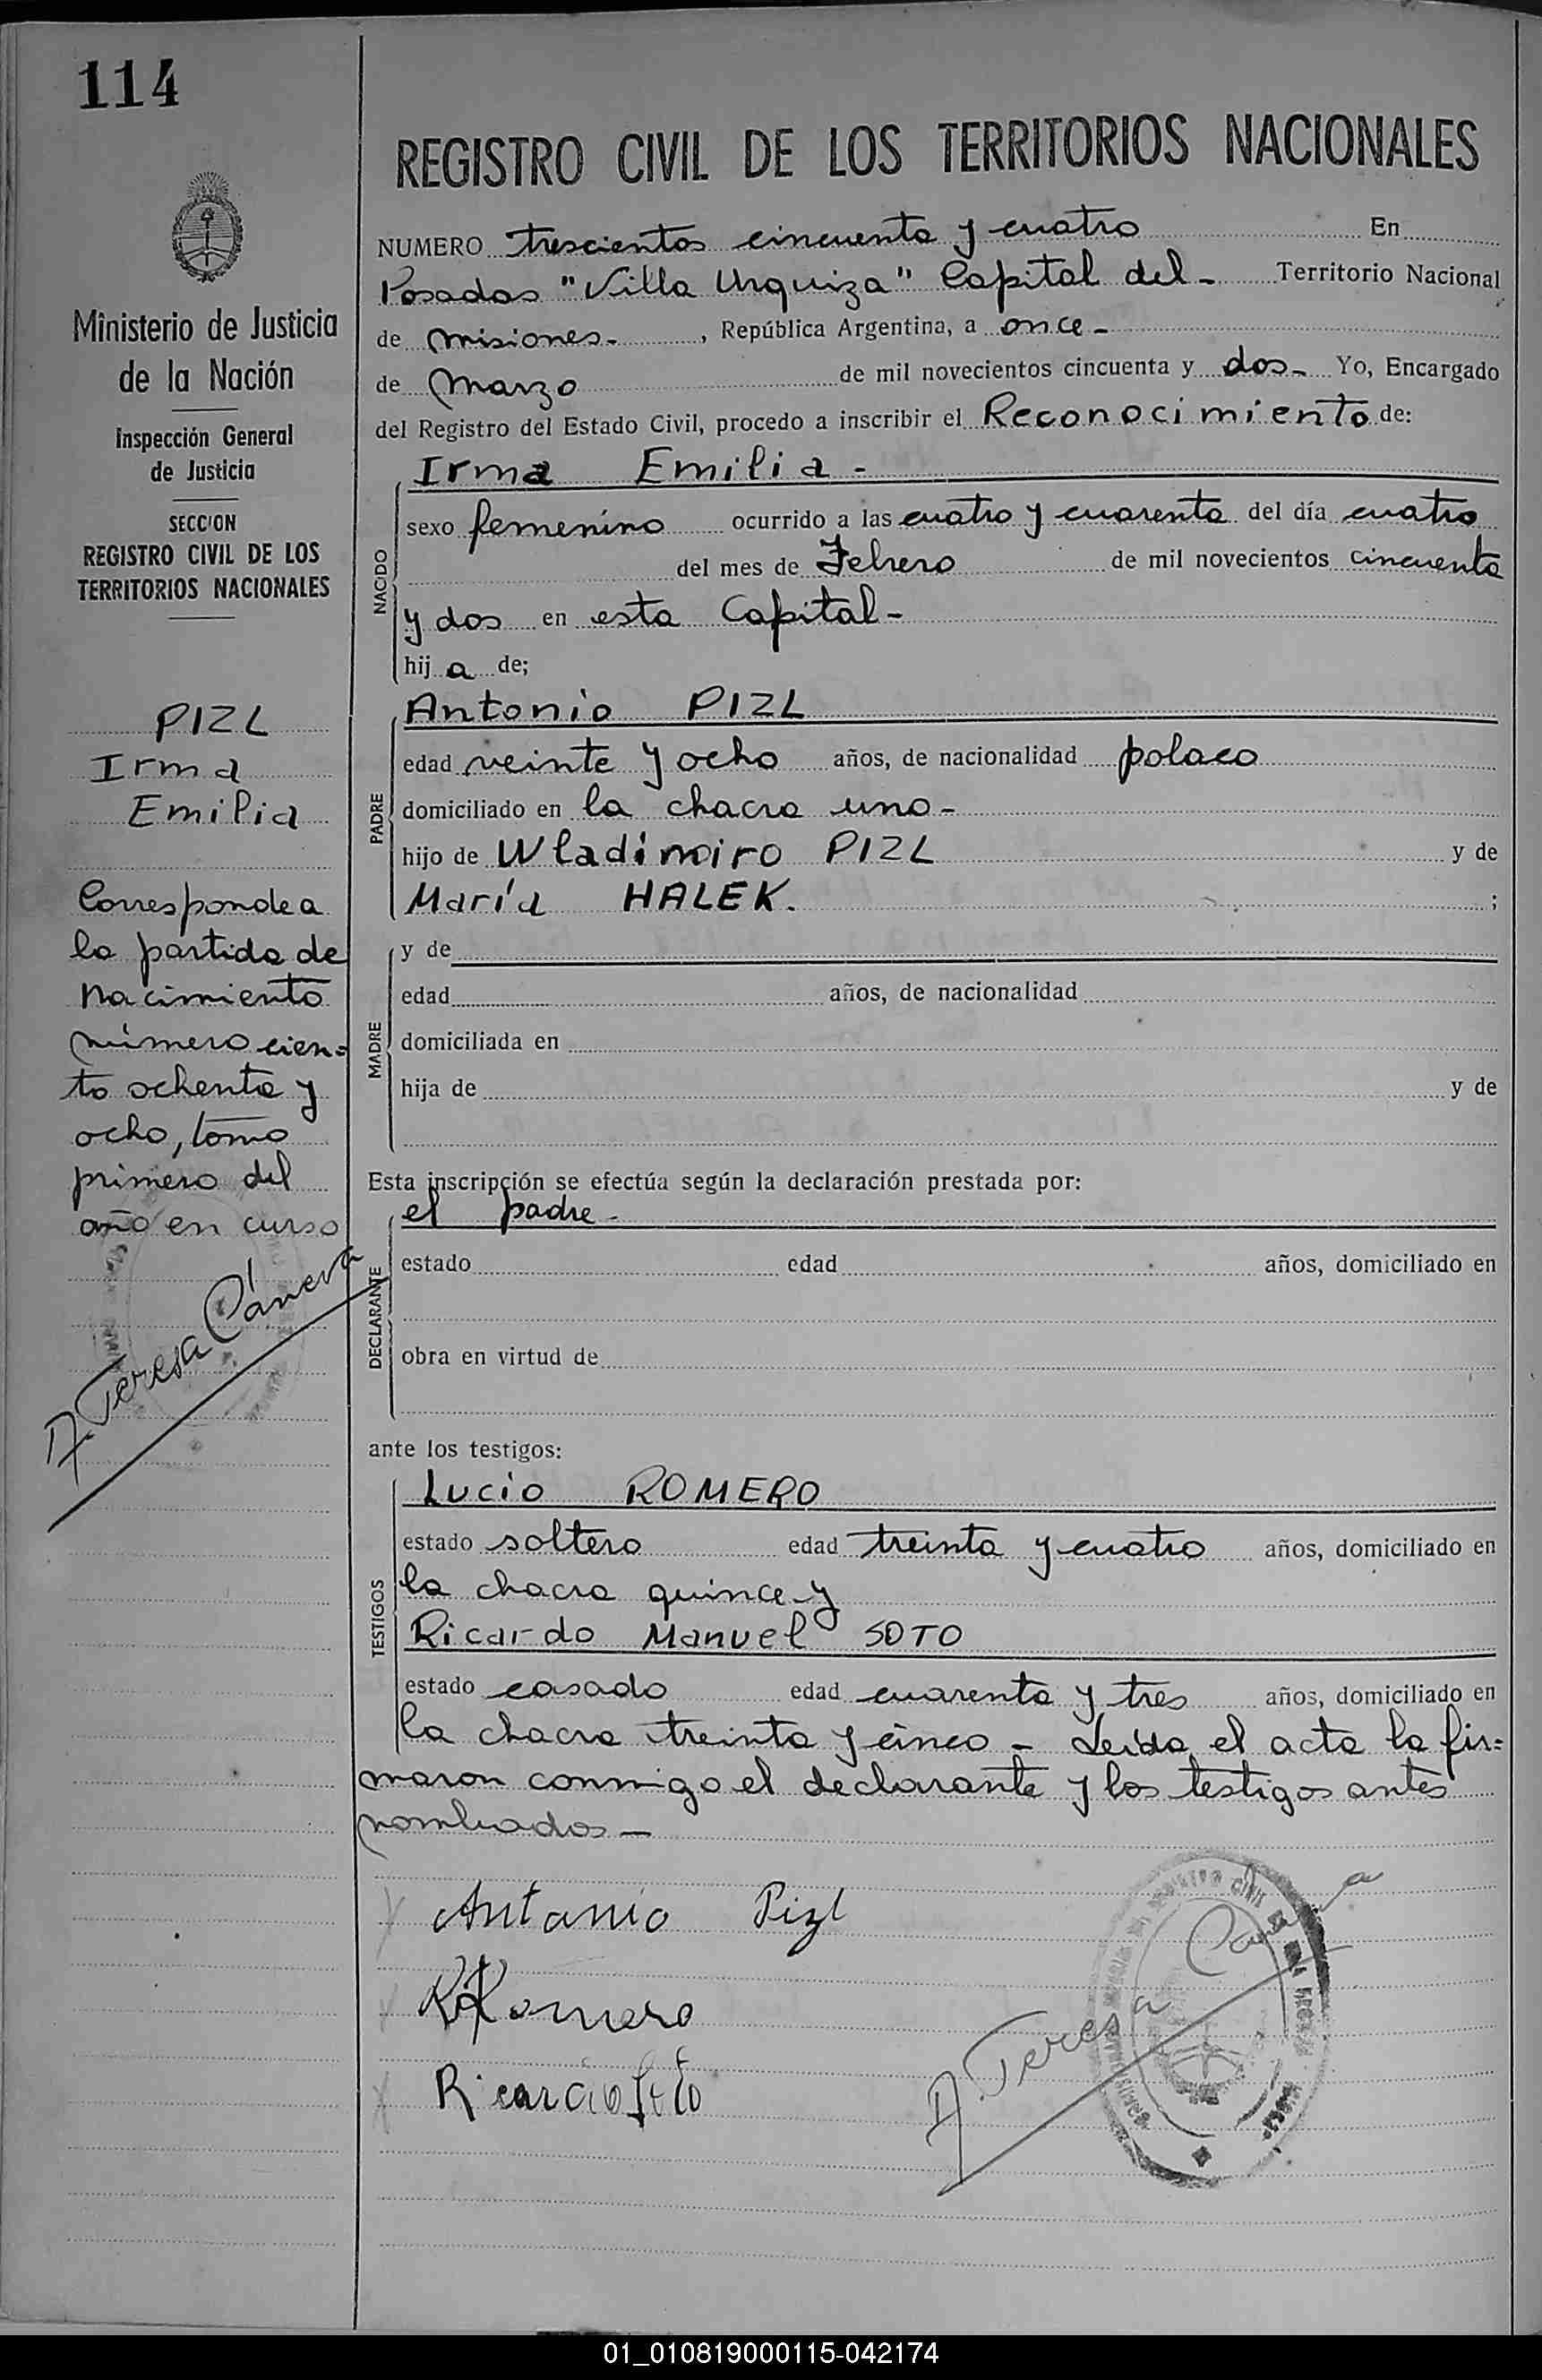 114
REGISTRO CIVIL DE LOS TERRITORIOS NACIONALES
Ministerio de Justicia
de la Nación
Inspección General
de Justicia
SECCION
REGISTRO CIVIL DE LOS
TERRITORIOS NACIONALES
PIZL
Irma
Emilia
Corresponde a
la partida de
nacimiento
número cien=
to ochenta y
ocho, tomo
primero del
año en curso
A. Teresa Cáneva
NUMERO trescientos cincuenta y cuatro En
Posadas "Villa Urquiza" Capital del - Territorio Nacional
de Misiones - , República Argentina, a once -
de Marzo de mil novecientos cincuenta y dos - Yo, Encargado
del Registro del Estado Civil, procedo a inscribir el Reconocimiento de:
NACIDO
Irma Emilia -
sexo femenino ocurrido a las cuatro y cuarenta del día cuatro
del mes de Febrero de mil novecientos cincuenta
y dos en esta Capital -
hij a de;
PADRE
Antonio PIZL
edad veinte y ocho años, de nacionalidad polaco
domiciliado en la chacra uno -
hijo de Wladimiro PIZL y de
María HALEK. ;
MADRE
y de
edad años, de nacionalidad
domiciliada en
hija de y de
Esta inscripción se efectúa según la declaración prestada por:
DECLARANTE
el padre -
estado edad años, domiciliado en
obra en virtud de
ante los testigos:
TESTIGOS
Lucio ROMERO
estado soltero edad treinta y cuatro años, domiciliado en
la chacra quince y
Ricardo Manuel SOTO
estado casado edad cuarenta y tres años, domiciliado en
la chacra treinta y cinco - Leída el acta la fir=
maron conmigo el declarante y los testigos antes
nombrados -
Antonio Pizl
Romero
Ricardo Soto
A. Teresa Cáneva
01_010819000115-042174